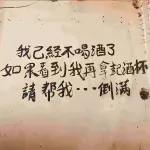 我己經不喝酒了
如果看到我再拿起酒杯
請幫我…倒滿